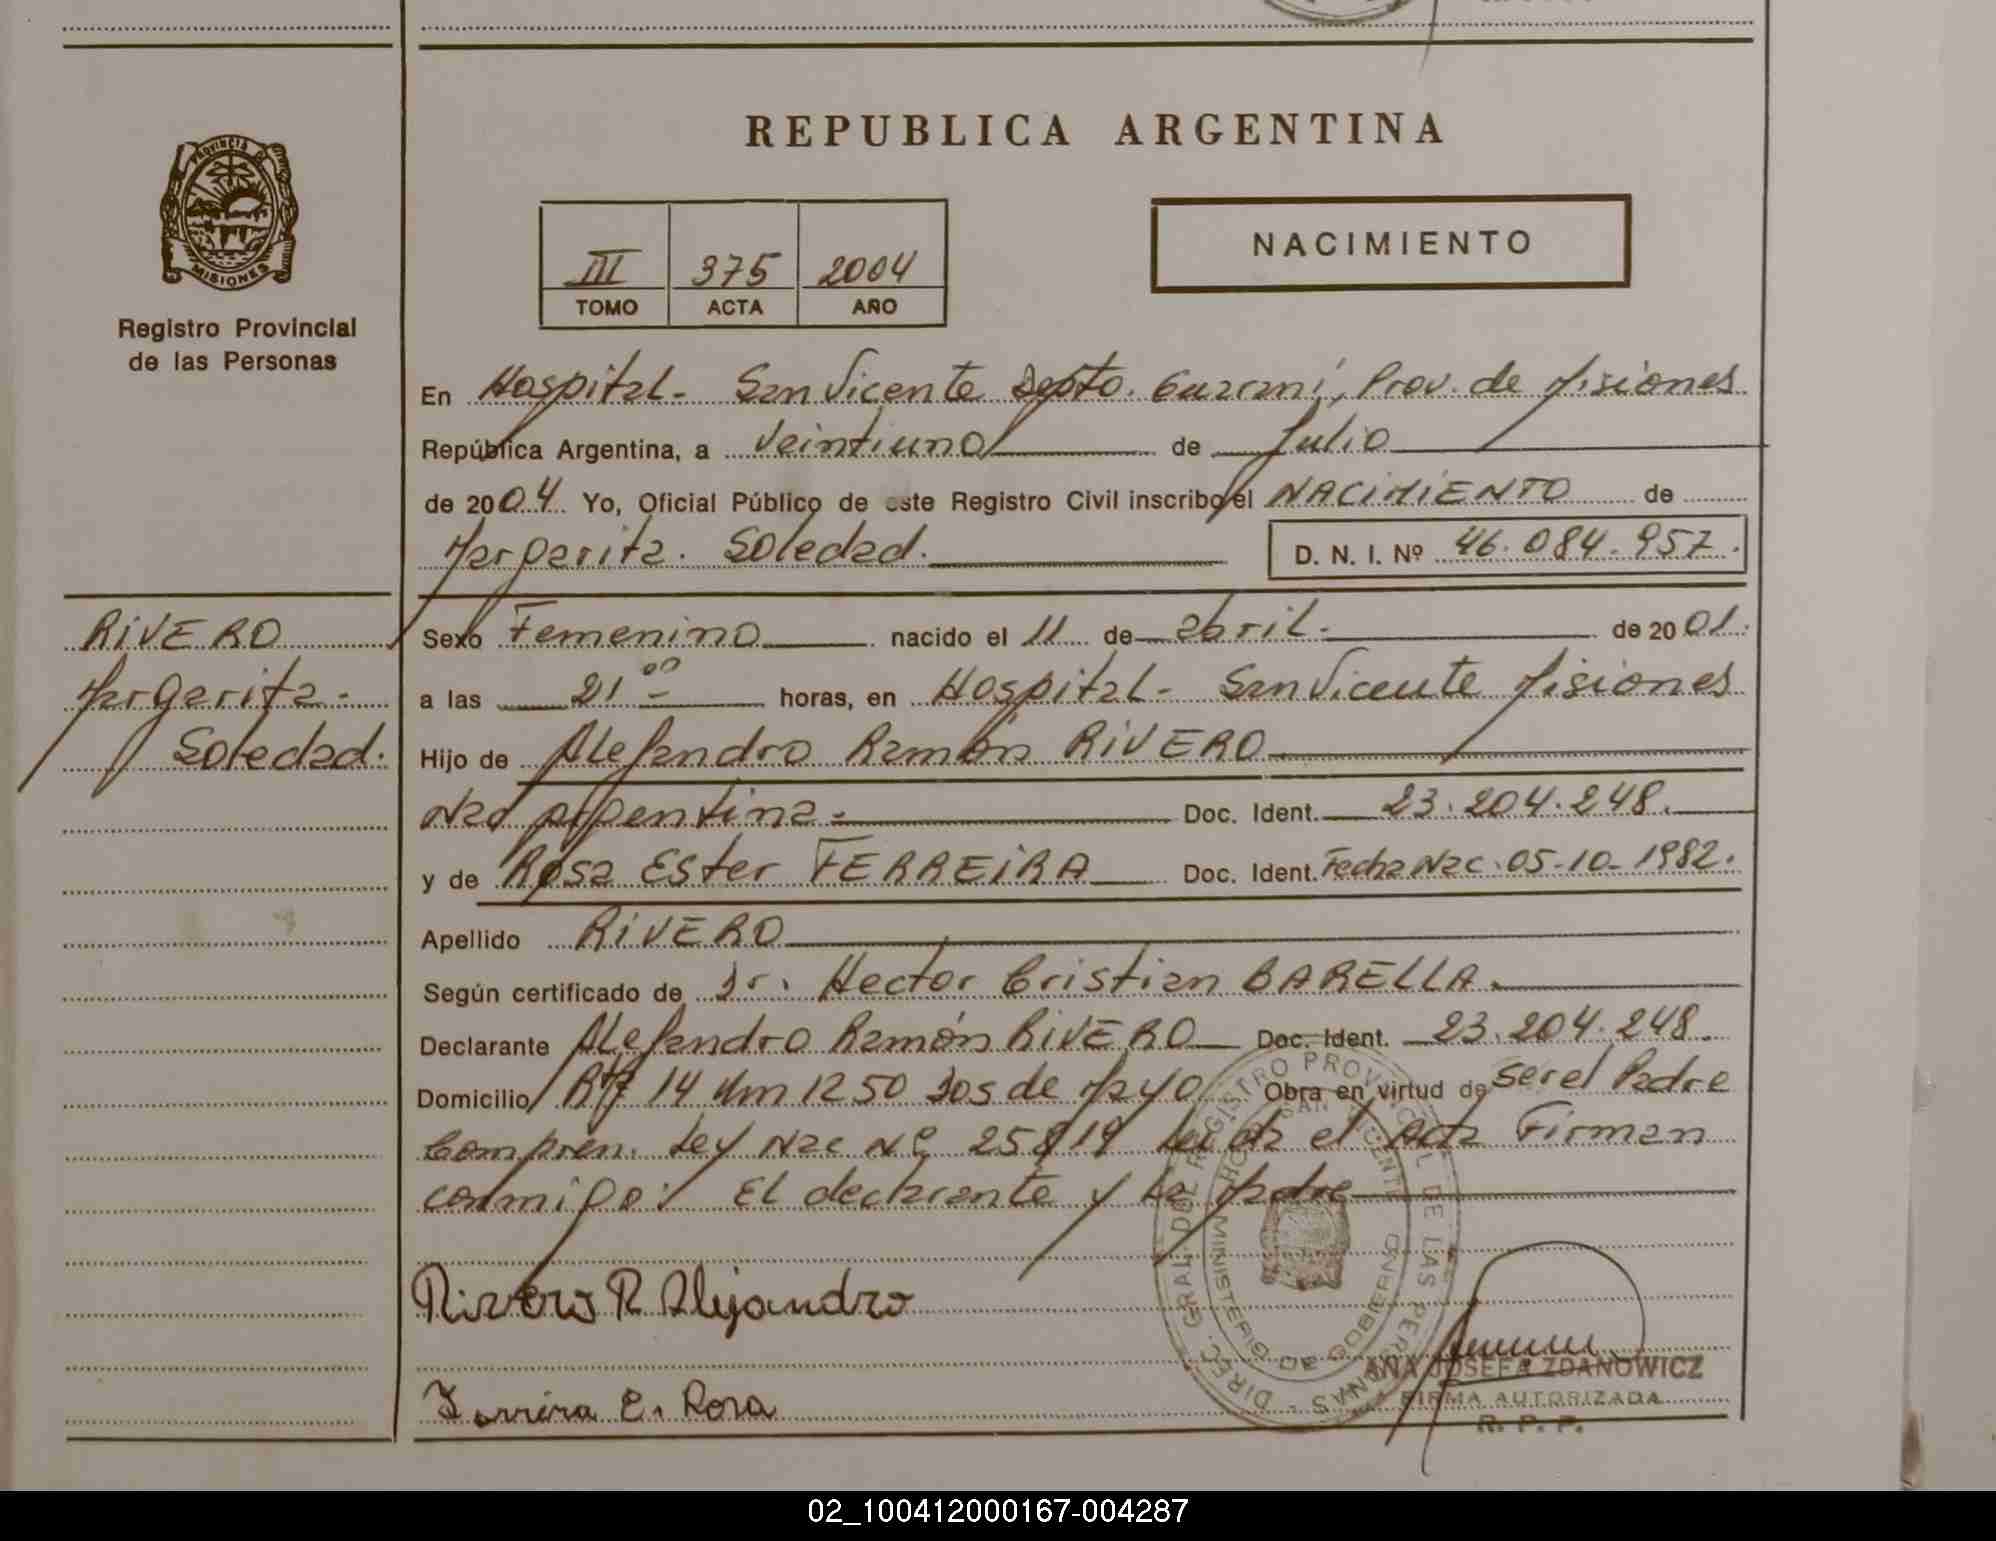 REPUBLICA ARGENTINA
PROVINCIA DE
MISIONES
Registro Provincial
de las Personas
III 375 2004
TOMO ACTA AÑO
NACIMIENTO
En Hospital - San Vicente Depto. Guaraní, Prov. de Misiones
República Argentina, a Veintiuno de Julio
de 2004 Yo, Oficial Público de este Registro Civil inscribo el NACIMIENTO de
Margarita. Soledad. D. N. I. Nº 46.084.957.
RIVERO
Margarita -
Soledad.
Sexo Femenino nacido el 11 de abril. de 2001.
a las 21 00 horas, en Hospital - San Vicente Misiones
Hijo de Alejandro Ramón RIVERO
Nac Argentina - Doc. Ident. 23.204.248.
y de Rosa Ester FERREIRA Doc. Ident. Fecha Nac. 05-10-1982.
Apellido RIVERO
Según certificado de Dr. Hector Cristian BARELLA.
Declarante Alejandro Ramón RIVERO Doc. Ident. 23.204.248.
Domicilio 14 Km 1250 Dos de Mayo Obra en virtud de ser el Padre
Compren. Ley Nac Nº 25819 Leída el Acta Firman
conmigo: El declarante y la Madre
DIREC. GRAL. DEL REGISTRO PROVINCIAL DE LAS PERSONAS -
MINISTERIO DE GOBIERNO
SAN VICENTE
Rivero R Alejandro
Ferreira E. Rosa
ANA JOSEFA ZDANOWICZ
FIRMA AUTORIZADA
R. P. P.
02_100412000167-004287